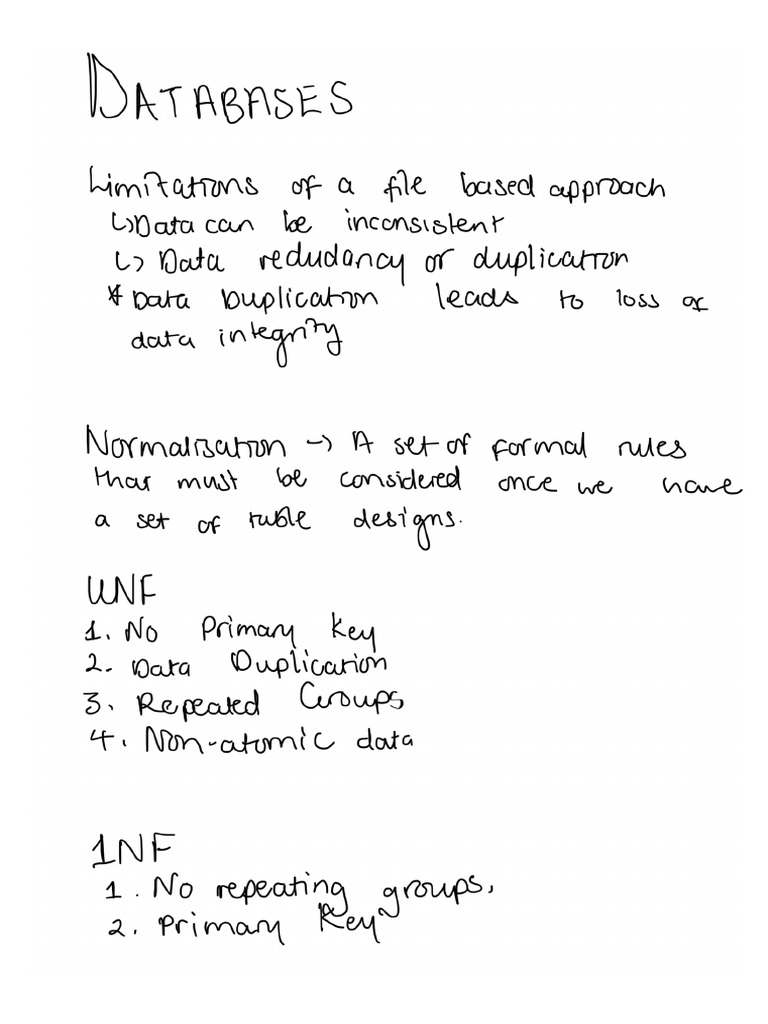 DATABASES
Limitations of a file based approach
↳ Data can be inconsistent
↳ Data redudancy or duplication
* Data Duplication leads to loss of
data integrity
Normalisation → A set of formal rules
that must be considered once we have
a set of table designs.
UNF
1. No Primary key
2. Data Duplication
3. Repeated Groups
4. Non-atomic data
1NF
1. No repeating groups,
2. Primary Key